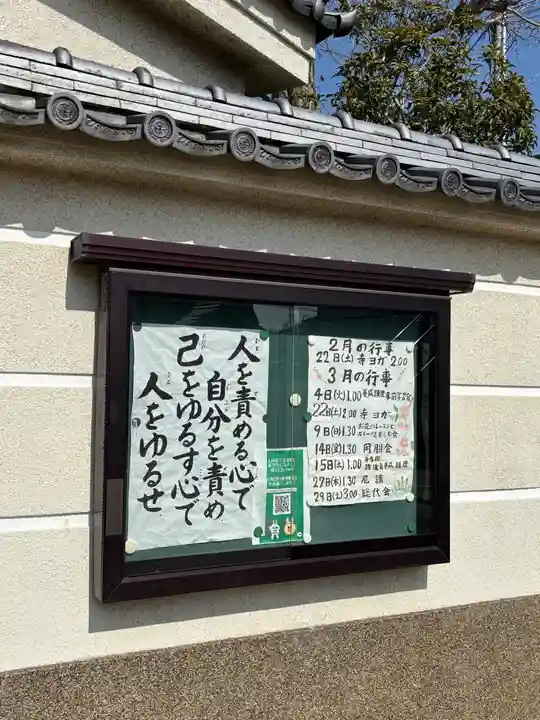 人を責める心で
自分を責め
己をゆるす心で
人をゆるせ
2月の行事
22日(土) 寺ヨガ 2.00
3月の行事
4日(火)1.00
22日(土)2.00 寺ヨガ
9日(日)1.30
14日(金)1.30 同朋会
15日(土)1.00
27日(木)1.30 尼講
29日(土)3.00 総代会